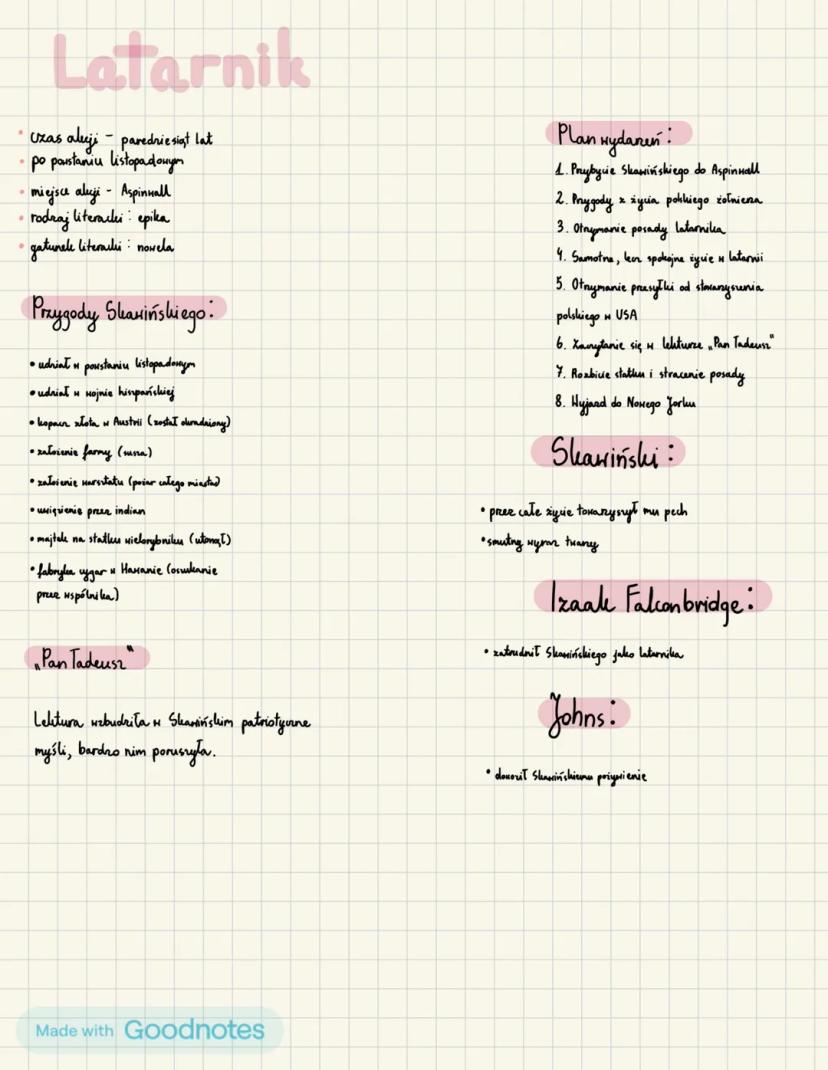 Latarnik
• czas akcji - paredziesiąt lat
• po powstaniu listopadowym
• miejsce akcji - Aspinwall
• rodzaj literacki : epika
• gatunek literacki : nowela
Przygody Skawińskiego:
• udział w powstaniu listopadowym
• udział w wojnie hiszpańskiej
• kopacz złota w Austrii (został okradziony)
• założenie farmy (susza)
• założenie warsztatu (pożar całego miasta)
• uwięzienie przez indian
• majtek na statku wielorybniku (utonął)
• fabryka cygar w Hawanie (oszukanie
przez wspólnika)
„Pan Tadeusz"
Lektura wzbudziła w Skawińskim patriotyczne
myśli, bardzo nim poruszyła.
Plan wydarzeń:
1. Przybycie Skawińskiego do Aspinwall
2. Przygody z życia polskiego żołnierza
3. Otrzymanie posady latarnika
4. Samotne, lecz spokojne życie w latarnii
5. Otrzymanie przesyłki od stowarzyszenia
polskiego w USA
6. Zaczytanie się w lekturze „Pan Tadeusz"
7. Rozbicie statku i stracenie posady
8. Wyjazd do Nowego Jorku
Skawiński:
• przez całe życie towarzyszył mu pech
• smutny wyraz twarzy
Izaak Falconbridge:
• zatrudnił Skawińskiego jako latarnika
Johns:
• dowoził Skawińskiemu pożywienie
Made with Goodnotes